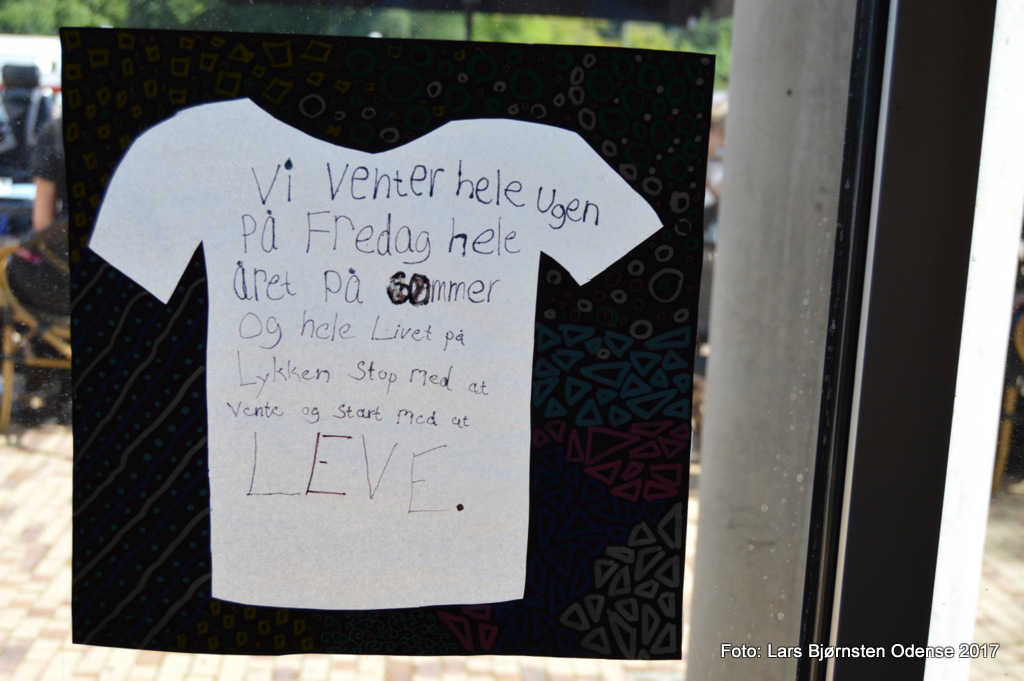 Vi Venter hele Ugen
på Fredag hele
året på SOmmer
og hele Livet på
Lykken Stop med at
vente og Start med at
LEVE.
Foto: Lars Bjørnsten Odense 2017